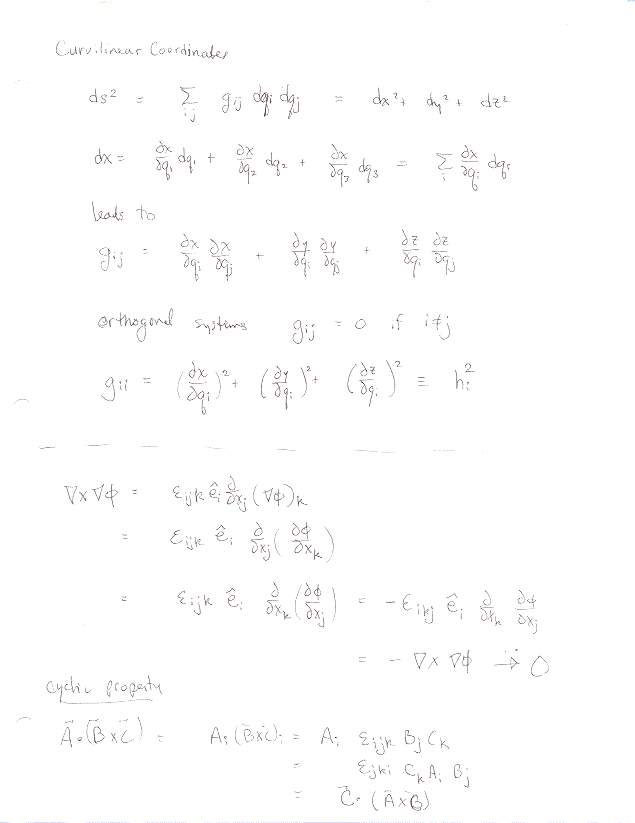 Curvilinear Coordinates
ds² = Σ_ij g_ij dq_i dq_j = dx² + dy² + dz²
dx = ∂x/∂q₁ dq₁ + ∂x/∂q₂ dq₂ + ∂x/∂q₃ dq₃ = Σ_i ∂x/∂q_i dq_i
leads to
g_ij = ∂x/∂q_i ∂x/∂q_j + ∂y/∂q_i ∂y/∂q_j + ∂z/∂q_i ∂z/∂q_j
orthogonal systems g_ij = 0 if i≠j
g_ii = (∂x/∂q_i)² + (∂y/∂q_i)² + (∂z/∂q_i)² ≡ h_i²
∇×∇φ = ε_ijk ê_i ∂/∂x_j (∇φ)_k
= ε_ijk ê_i ∂/∂x_j (∂φ/∂x_k)
= ε_ijk ê_i ∂/∂x_k (∂φ/∂x_j) = -ε_ikj ê_i ∂/∂x_k ∂φ/∂x_j
= - ∇×∇φ ∴→ 0
cyclic property
A⃗·(B⃗×C⃗) = A_i (B⃗×C⃗)_i = A_i ε_ijk B_j C_k
= ε_jki C_k A_i B_j
= C⃗·(A⃗×B⃗)